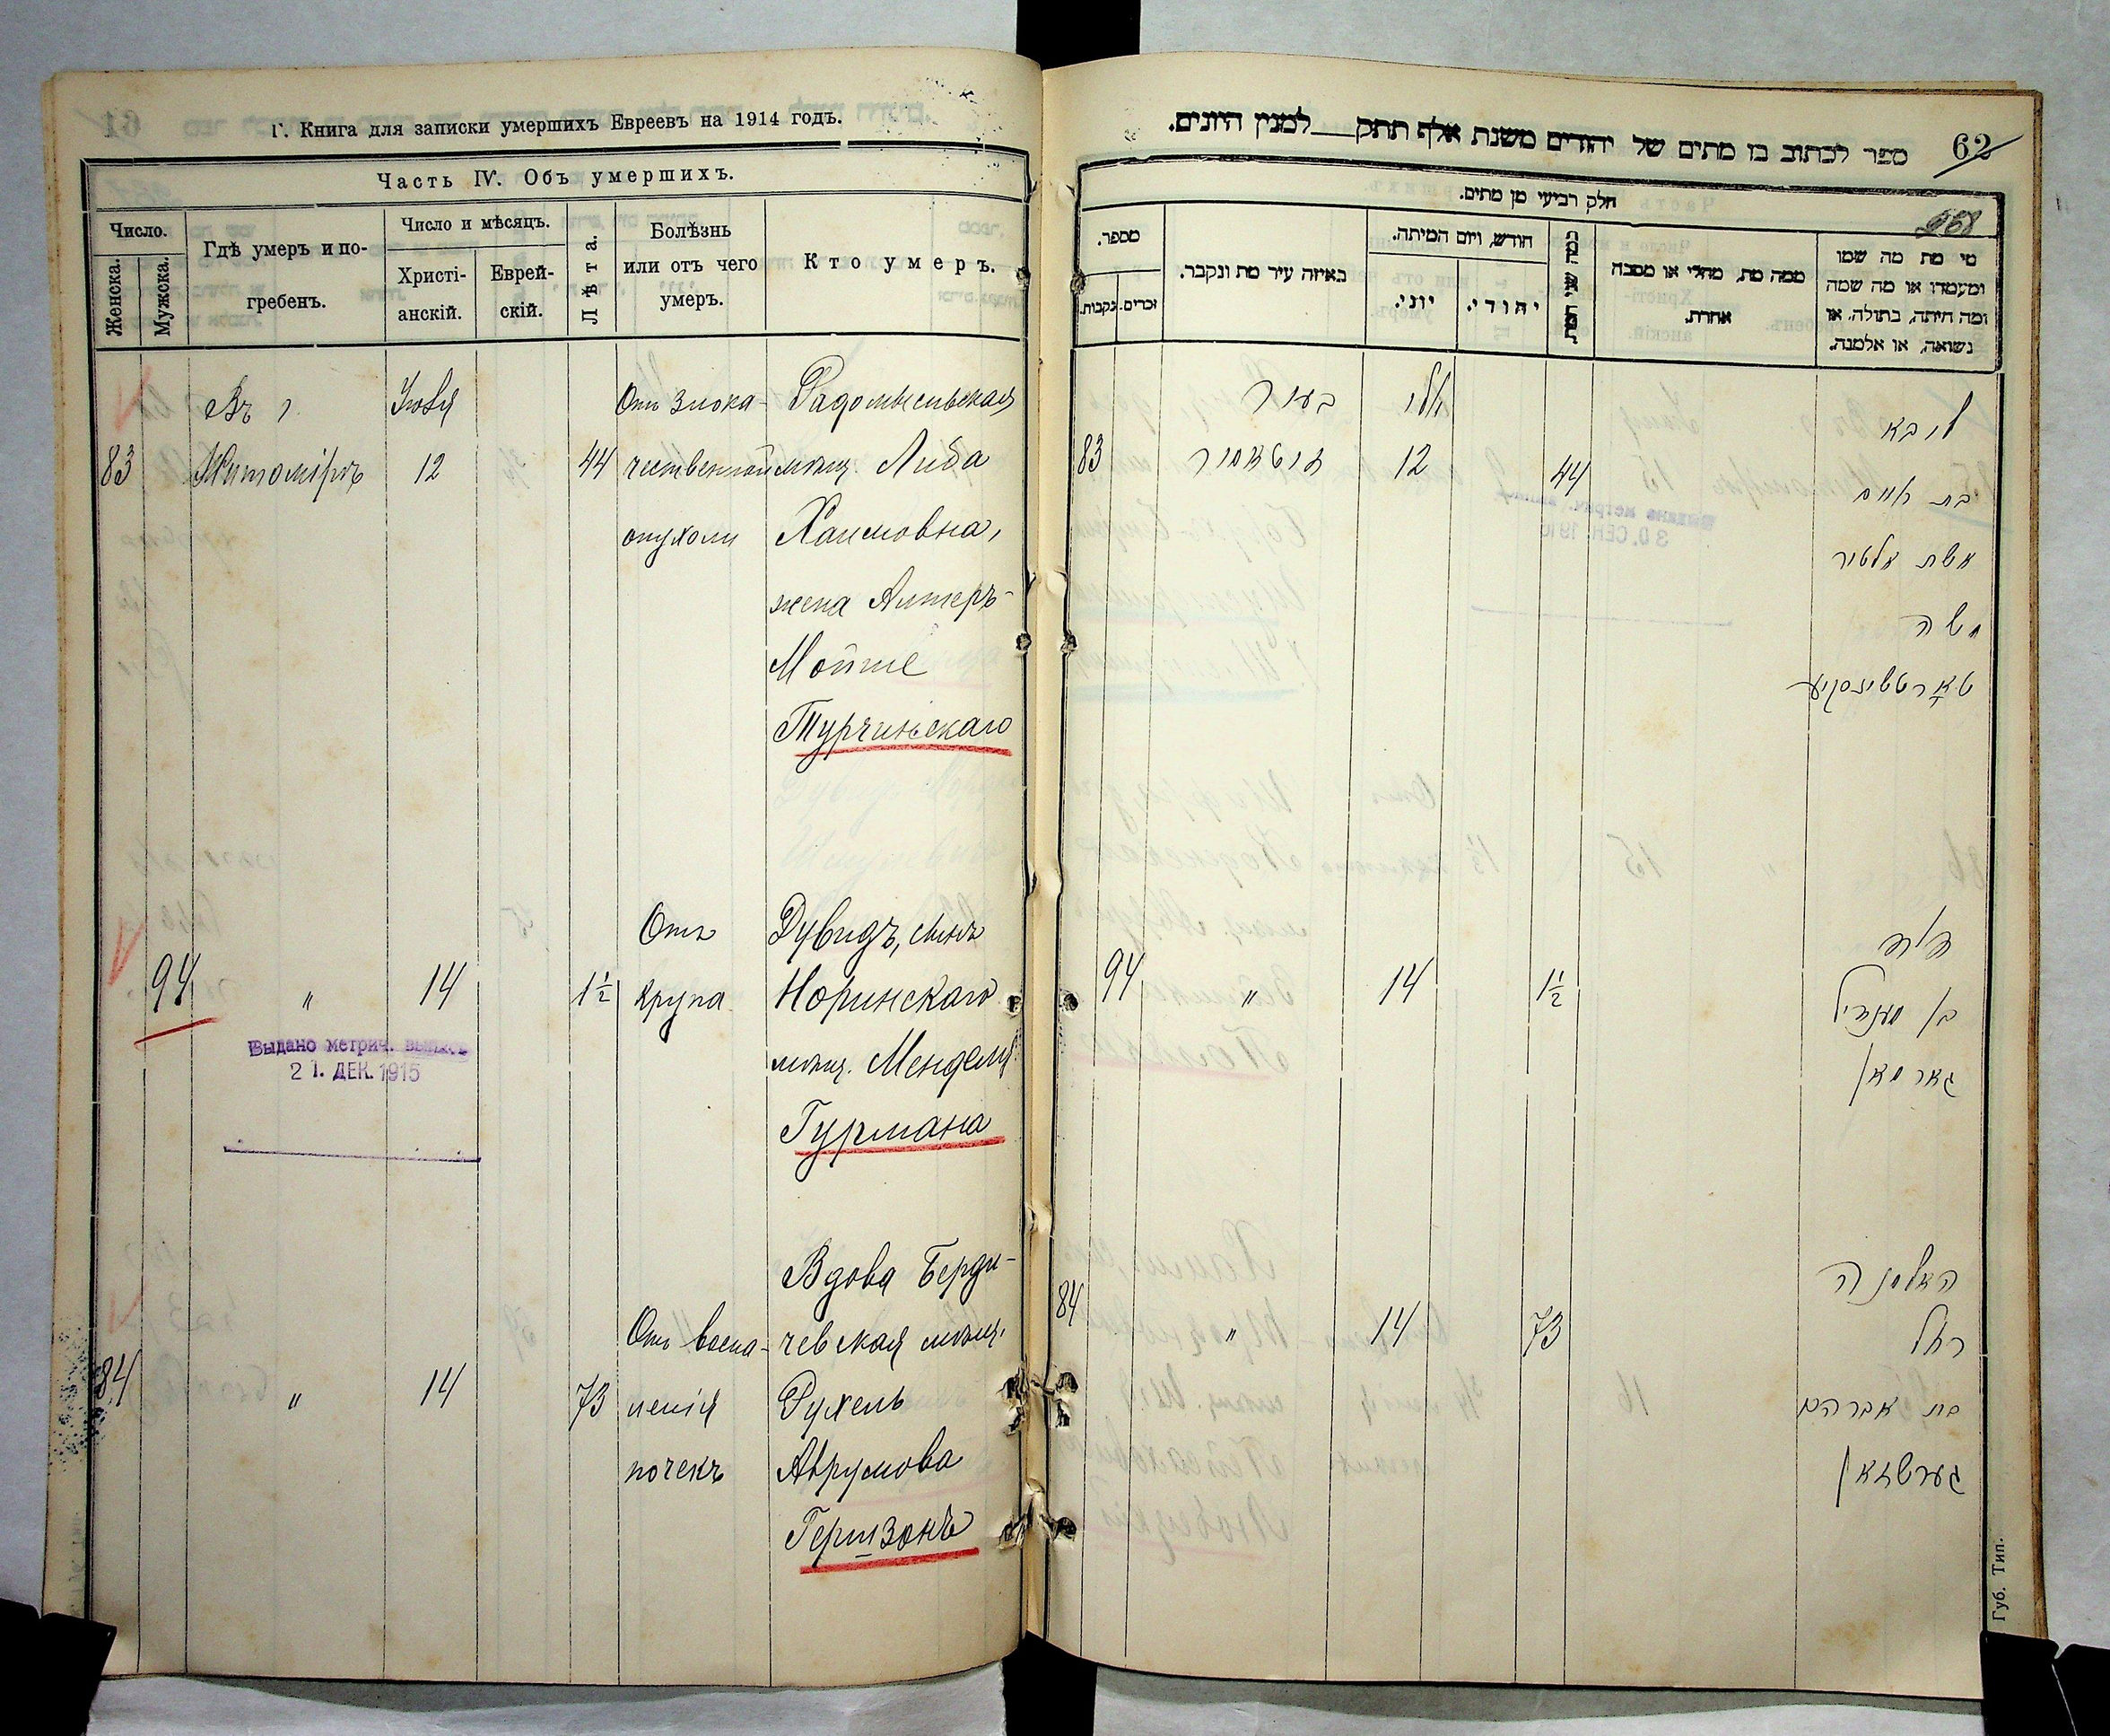 Г. Книга для записки умершихъ Евреевъ на 1914 годъ.
Часть IV. Объ умершихъ.
Число.
Женска.
Мужска.
Гдѣ умеръ и по-
гребенъ.
Число и мѣсяцъ.
Христі-
анскій.
Еврей-
скій.
Лѣта.
Болѣзнь
или отъ чего
умеръ.
Кто умеръ.
83
Въ г.
Житомірѣ
Іюля
12
44
Отъ злока-
чественной
опухоли
Радомысльская
мѣщ. Либа
Хаимовна,
жена Алтеръ-
Мойше
Турчинскаго
94
"
14
1½
Отъ
крупа
Дувидъ, сынъ
Норинскаго
мѣщ. Менделя
Гурмана
Выдано метрич. выпись
21. ДЕК. 1915
84
"
14
73
Отъ воспа-
ленія
почекъ
Вдова Берди-
чевская мѣщ.
Рухель
Аврумова
Гершзонъ
62
ספר לכתוב בו מתים של יהודים משנת אלף תתק למנין היונים.
חלק רביעי מן מתים.
מספר.
זכרים.
נקבות.
באיזה עיר מת ונקבר.
חודש, ויום המיתה.
יוני.
יהודי.
כמה שני המת.
ממה מת, מחלי או מסבה
אחרת.
מי מת מה שמו
ומעמדו או מה שמה
ומה היתה, בתולה, או
נשואה, או אלמנה.
83
בעיר
זיטאמיר
יולי
12
44
ליבא
בת חיים
אשת אלטיר
משה
טארטשינסקיע
94
"
14
1½
דוד
בן מענדיל
גארמאן
84
"
14
73
האלמנה
רחל
בת אברהם
גערשזאן
Губ. Тип.